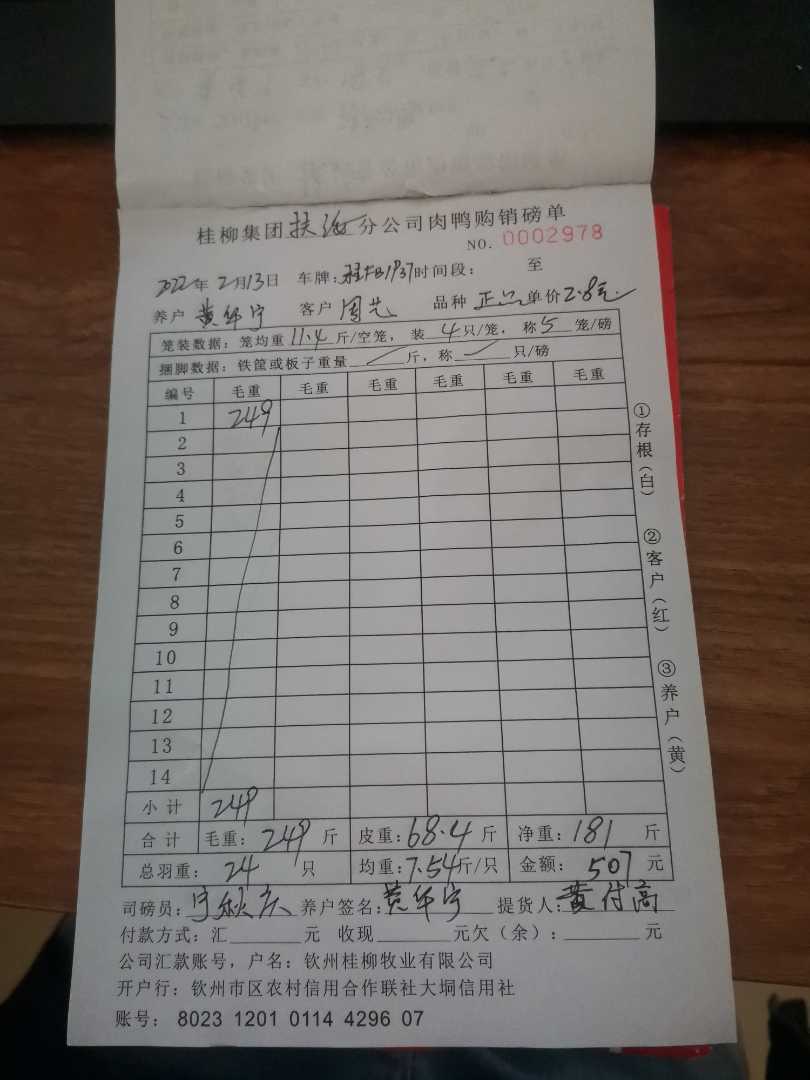 桂柳集团扶海分公司肉鸭购销磅单
NO. 0002978
2022年2月13日 车牌: 时间段: 至
养户 黄华宁 客户 周艺 品种 正品 单价2.8元
笼装数据:笼均重11.4斤/空笼,装4只/笼,称5笼/磅
捆脚数据:铁筐或板子重量 斤,称 只/磅
编号 毛重 毛重 毛重 毛重 毛重 毛重
1 249
2
3
4
5
6
7
8
9
10
11
12
13
14
小计 249
合计 毛重:249斤 皮重:68.4斤 净重:181斤
总羽重:24只 均重:7.54斤/只 金额:507元
司磅员:宁秋庆 养户签名:黄华宁 提货人:黄付高
付款方式:汇 元 收现 元欠(余): 元
公司汇款账号,户名:钦州桂柳牧业有限公司
开户行:钦州市区农村信用合作联社大垌信用社
账号: 8023 1201 0114 4296 07
①存根(白)
②客户(红)
③养户(黄)